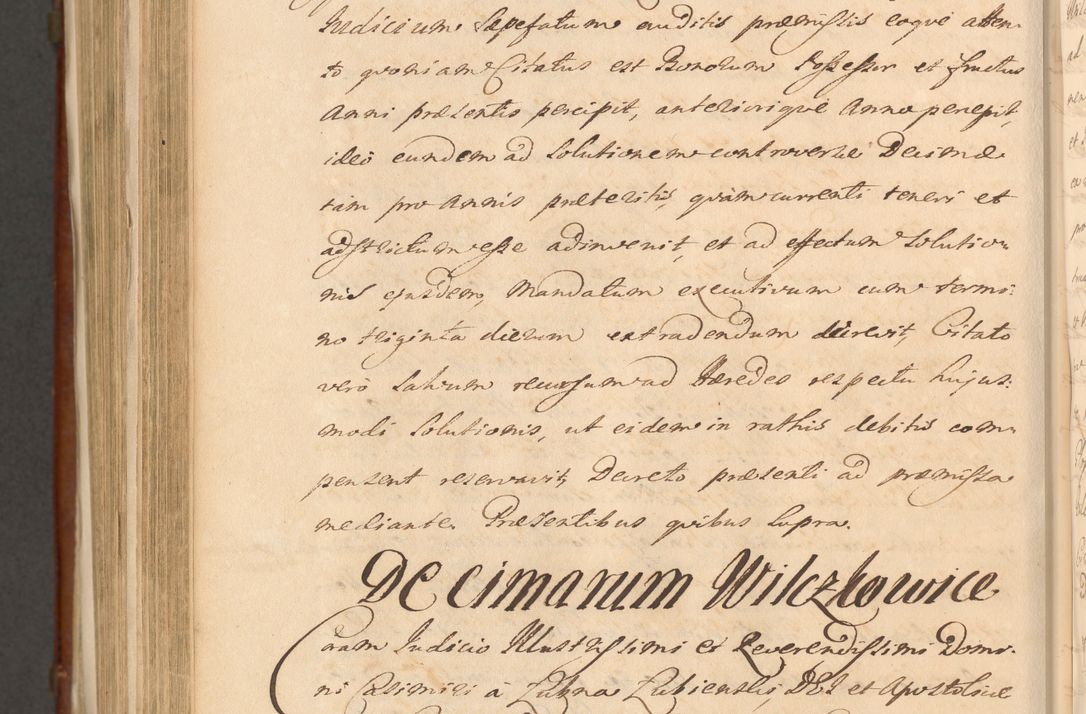 Judicium Sæpefatum auditis præmissis eoque atten-
to quoniam Citatus est Bonorum Possessor et fructus
Anni præsentis percipit, anteriorique Anno percepit,
ideo eundem ad Solutionem controversæ Decimæ
tam pro Annis præteritis, quam currenti teneri et
adstrictum esse adinvenit, et ad effectum Solutio-
nis ejusdem, Mandatum executivum cum termi-
no triginta dierum extradendum decrevit, Citato
vero Salvum recursum ad Hæredes respectu hujus-
modi Solutionis, ut eidem in rathis debitis com-
pensent reservavit, Decreto præsenti ad præmissa
mediante. Præsentibus quibus Supra.
Decimarum Wilczkowice
Coram Judicio Illustrissimi et Reverendissimi Domi-
ni Casimiri à Łubna Łubienski, DEI et Apostolicæ